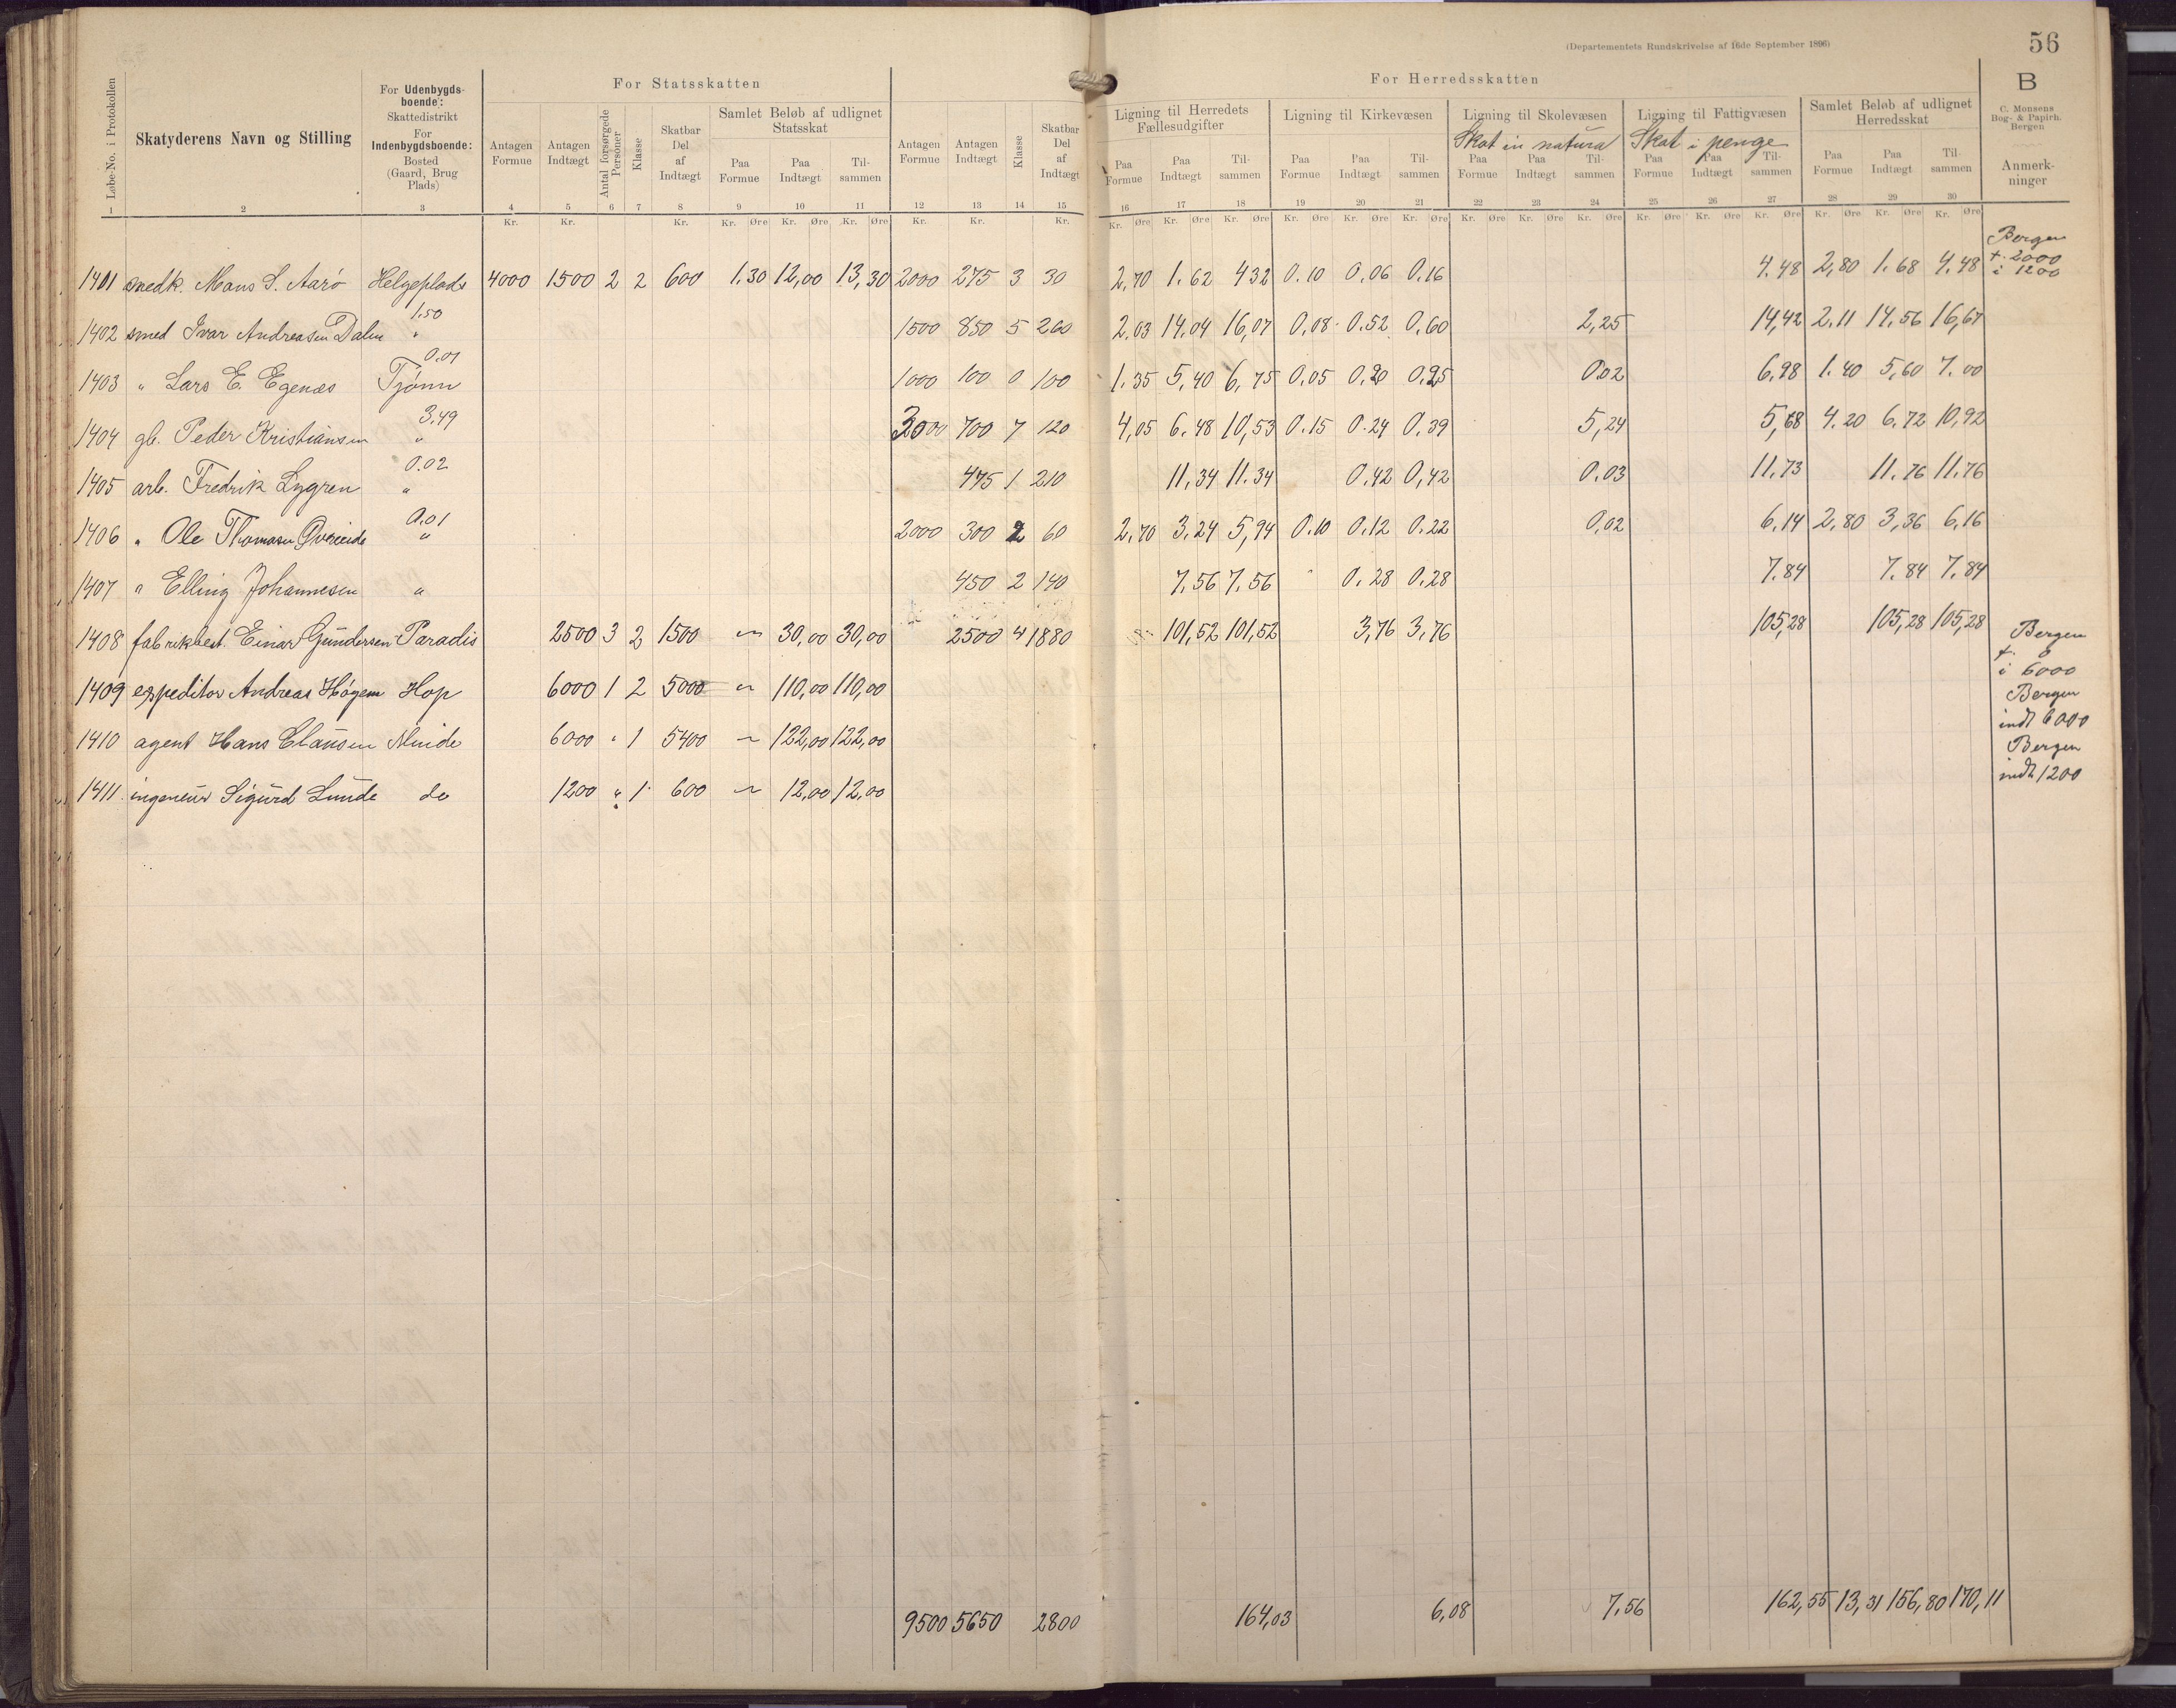 (Departementets Rundskrivelse af 16de September 1896) 56
For Statsskatten For Herredsskatten B
Løbe-No. i Protokollen
Skatyderens Navn og Stilling
For Udenbygds-
boende:
Skattedistrikt
For
Indenbygdsboende:
Bosted
(Gaard, Brug
Plads)
Antagen
Formue
Antagen
Indtægt
Antal forsørgede
Personer
Klasse
Skatbar
Del
af
Indtægt
Samlet Beløb af udlignet
Statsskat
Paa
Formue
Paa
Indtægt
Til-
sammen
Antagen
Formue
Antagen
Indtægt
Klasse
Skatbar
Del
af
Indtægt
Ligning til Herredets
Fællesudgifter
Paa
Formue
Paa
Indtægt
Til-
sammen
Ligning til Kirkevæsen
Paa
Formue
Paa
Indtægt
Til-
sammen
Ligning til Skolevæsen
Skat in natura
Paa
Formue
Paa
Indtægt
Til-
sammen
Ligning til Fattigvæsen
Skat i penge
Paa
Formue
Paa
Indtægt
Til-
sammen
Samlet Beløb af udlignet
Herredsskat
Paa
Formue
Paa
Indtægt
Til
sammen
C. Monsens
Bog- & Papirh.
Bergen
Anmerk-
ninger
1 2 3 4 5 6 7 8 9 10 11 12 13 14 15 16 17 18 19 20 21 22 23 24 25 26 27 28 29 30
Kr. Kr. Kr. Kr. Øre Kr. Øre Kr. Øre Kr. Kr. Kr. Kr. Øre Kr. Øre Kr. Øre Kr. Øre Kr. Øre Kr. Øre Kr. Øre Kr. Øre Kr. Øre Kr. Øre Kr. Øre Kr. Øre Kr. Øre Kr. Øre Kr. Øre
Bergen
f. 2000
i 1200
1401 snedk. Mons S. Aarø Helgeplads 4000 1500 2 2 600 1.30 12,00 13,30 2000 275 3 30 2,70 1.62 4 32 0.10 0,06 0,16 4.48 2,80 1.68 4.48
1.50
1402 smed Ivar Andreasen Dalen " 1500 850 5 260 2.03 14.04 16,07 0,08 0.52 0,60 2,25 14,42 2.11 14.56 16,67
0.01
1403 " Lars E. Egenæs Tjønn 1000 100 0 100 1.35 5,40 6,75 0.05 0,20 0,25 0.02 6,98 1.40 5,60 7.00
3,49
1404 gb. Peder Kristiansen " 3000 700 7 120 4,05 6.48 10,53 0.15 0.24 0,39 5,24 5,68 4.20 6.72 10,92
0.02
1405 arb. Fredrik Lygren " 475 1 210 11,34 11.34 0.42 0,42 0.03 11,73 11.76 11.76
0.01
1406 " Ole Thomasen Øvreeide " 2000 300 2 60 2.70 3.24 5,94 0.10 0.12 0.22 0,02 6,14 2,80 3,36 6,16
1407 " Elling Johannesen " 450 2 140 7.56 7.56 0.28 0.28 7.84 7.84 7.84
1408 fabrikbest. Einar Gundersen Paradis 2500 3 2 1500 " 30,00 30,00 2500 4 1880 101,52 101,52 3,76 3,76 105,28 105,28 105,28
Bergen
f. 0
i 6000
1409 expeditør Andreas Høgem Hop 6000 1 2 5000 " 110,00 110,00
Bergen
indt 6000
1410 agent Hans Clausen Minde 6000 " 1 5400 " 122,00 122,00
Bergen
indt 1200
1411 ingeneur Sigurd Lunde do 1200 " 1 600 " 12,00 12,00
9500 5650 2800 164,03 6,08 7,56 162,55 13,31 156,80 170,11